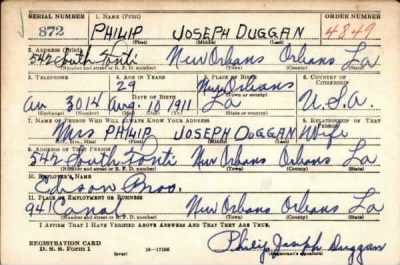 SERIAL NUMBER 1. NAME (Print) ORDER NUMBER
872 PHILIP JOSEPH DUGGAN 4849
(First) (Middle) (Last)
2. ADDRESS (Print)
542 South Ponti New Orleans Orleans La
(Number and street or R. F. D. number) (Town) (County) (State)
3. TELEPHONE 4. AGE IN YEARS 5. PLACE OF BIRTH 6. COUNTRY OF CITIZENSHIP
29 New Orleans
DATE OF BIRTH (Town or county)
au 3014 Aug. 10 1911 La U.S.A.
(Exchange) (Number) (Mo.) (Day) (Yr.) (State or country)
7. NAME OF PERSON WHO WILL ALWAYS KNOW YOUR ADDRESS 8. RELATIONSHIP OF THAT PERSON
Mrs PHILIP JOSEPH DUGGAN Wife
(Mr., Mrs., Miss) (First) (Middle) (Last)
9. ADDRESS OF THAT PERSON
542 South Ponti New Orleans Orleans La
(Number and street or R. F. D. number) (Town) (County) (State)
10. EMPLOYER'S NAME
Edison Bros.
11. PLACE OF EMPLOYMENT OR BUSINESS
941 Canal New Orleans Orleans La
(Number and street or R. F. D. number) (Town) (County) (State)
I AFFIRM THAT I HAVE VERIFIED ABOVE ANSWERS AND THAT THEY ARE TRUE.
REGISTRATION CARD
D. S. S. Form 1 (over) 16-17105 Philip Joseph Duggan
(Registrant's signature)